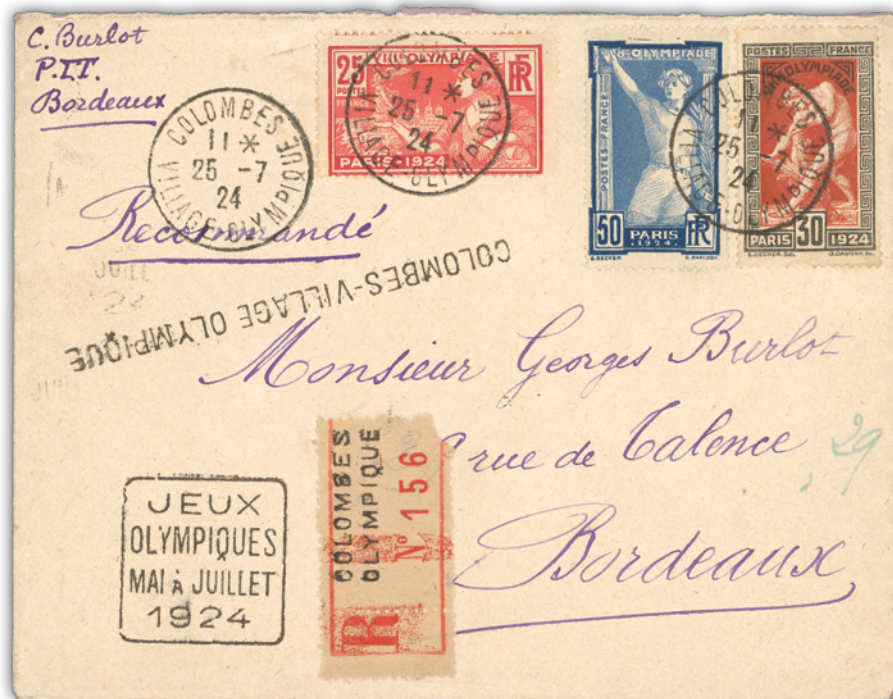 C. Burlot
P.T.T.
Bordeaux
COLOMBES
VILLAGE-OLYMPIQUE
11 *
25 -7
24
25
VIIIE OLYMPIADE
POSTES
FRANCE
RF
PARIS 1924
COLOMBES
VILLAGE-OLYMPIQUE
11 *
25 -7
24
8E OLYMPIADE
POSTES-FRANCE
50
PARIS
1924
RF
E. BECKER
G. PARISON
POSTES FRANCE
OLYMPIADE
PARIS 30 1924
E. BECKER Del.
G. DAUSSY Sc.
COLOMBES
VILLAGE-OLYMPIQUE
11 *
25 -7
24
Recommandé
JUILL
24
COLOMBES-VILLAGE OLYMPIQUE
JUIL
Monsieur Georges Burlot
rue de Talence
29
Bordeaux
JEUX
OLYMPIQUES
MAI À JUILLET
1924
COLOMBES
OLYMPIQUE
R N° 156